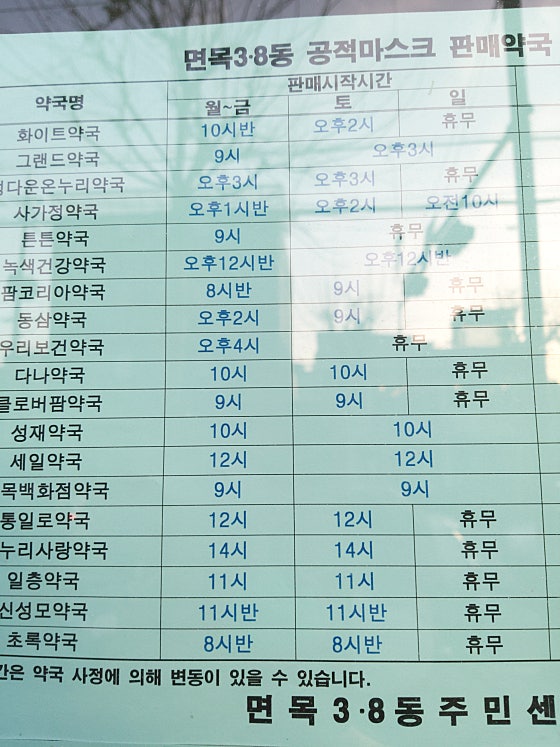 면목3·8동 공적마스크 판매약국
약국명 판매시작시간
월~금 토 일
화이트약국 10시반 오후2시 휴무
그랜드약국 9시 오후3시
다운온누리약국 오후3시 오후3시 휴무
사가정약국 오후1시반 오후2시 오전10시
튼튼약국 9시 휴무
녹색건강약국 오후12시반 오후12시반
팜코리아약국 8시반 9시 휴무
동삼약국 오후2시 9시 휴무
우리보건약국 오후4시 휴무
다나약국 10시 10시 휴무
클로버팜약국 9시 9시 휴무
성재약국 10시 10시
세일약국 12시 12시
목백화점약국 9시 9시
통일로약국 12시 12시 휴무
누리사랑약국 14시 14시 휴무
일층약국 11시 11시 휴무
신성모약국 11시반 11시반 휴무
초록약국 8시반 8시반 휴무
간은 약국 사정에 의해 변동이 있을 수 있습니다.
면목3·8동주민센